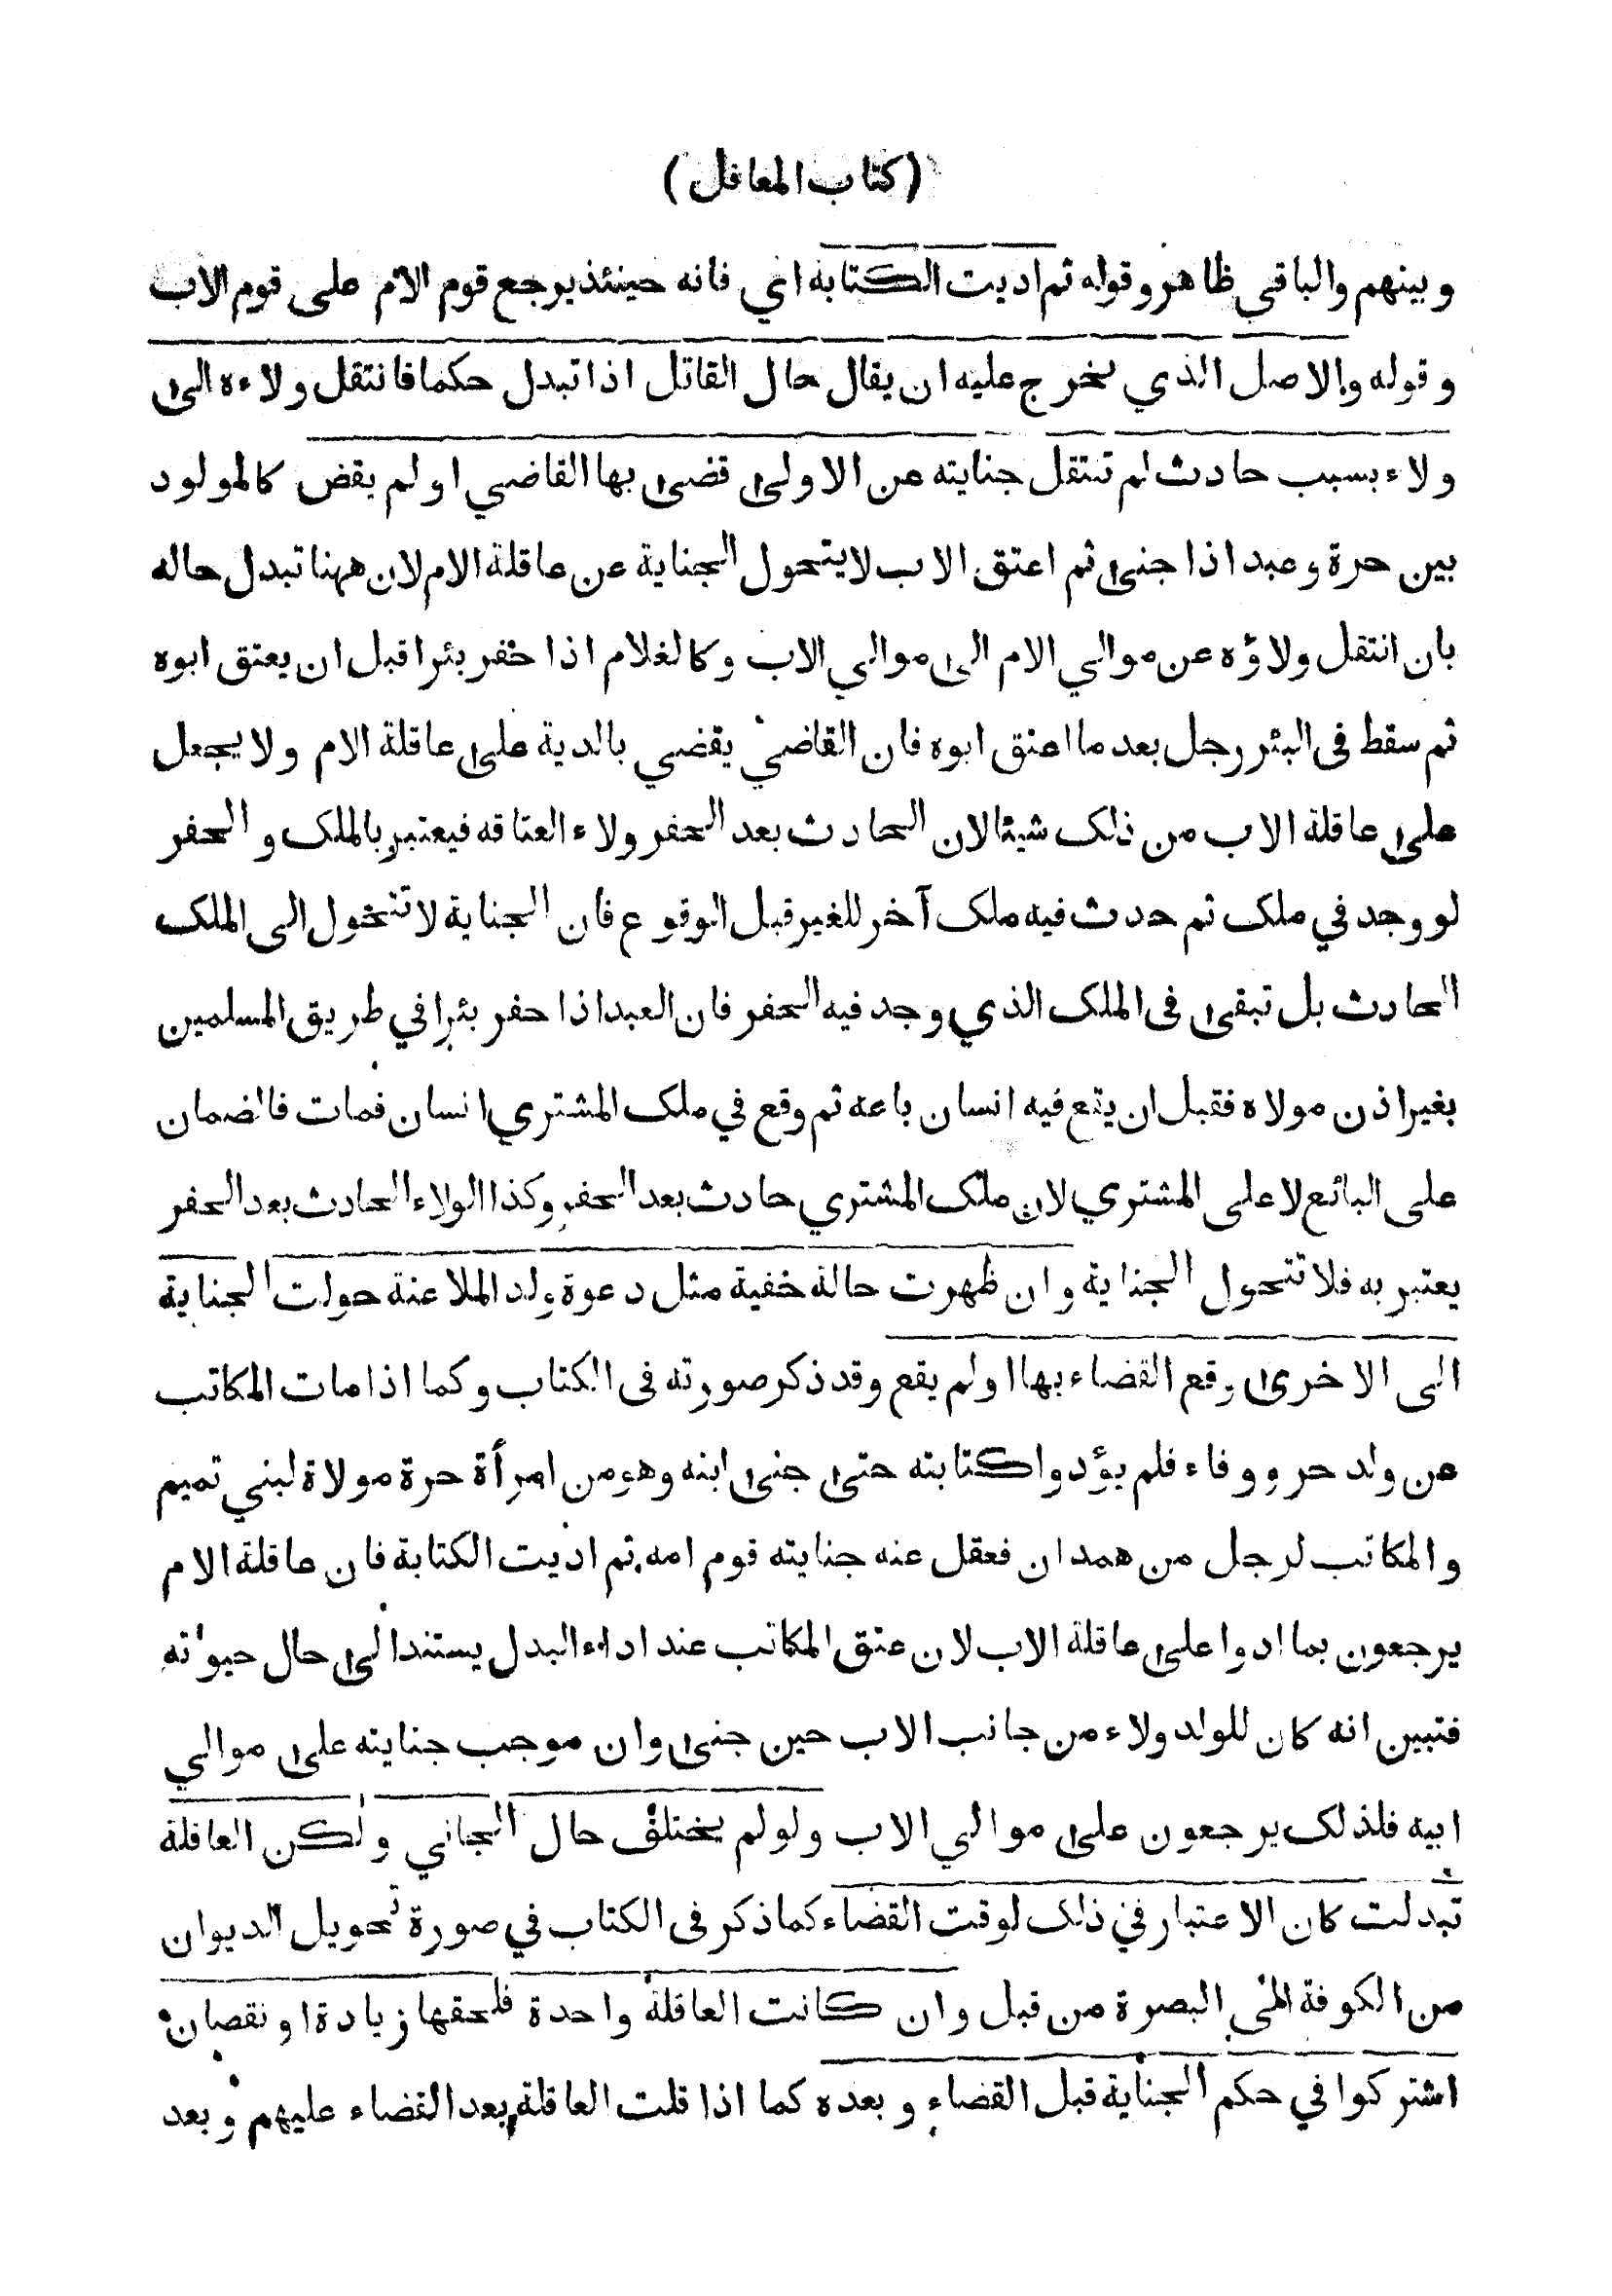 (كتاب المعاقل)
وبينهم والباقي ظاهر وقوله ثم اديت الكتابة اي فانه حينئذ يرجع قوم الام على قوم الاب
وقوله والاصل الذي يخرج عليه ان يقال حال القاتل اذا تبدل حكما فانتقل ولاءه الى
ولاء بسبب حادث لم تنتقل جنايته عن الاولى قضى بها القاضي او لم يقض كالمولود
بين حرة وعبد اذا جنى ثم اعتق الاب لا يتحول الجناية عن عاقلة الام لان ههنا تبدل حاله
بان انتقل ولاؤه عن موالي الام الى موالي الاب وكالغلام اذا حفر بئرا قبل ان يعتق ابوه
ثم سقط في البئر رجل بعد ما اعتق ابوه فان القاضي يقضي بالدية على عاقلة الام ولا يجعل
على عاقلة الاب من ذلك شيئا لان الحادث بعد الحفر ولاء العتاقه فيعتبر بالملك والحفر
لو وجد في ملك ثم حدث فيه ملك آخر للغير قبل الوقوع فان الجناية لا تتحول الى الملك
الحادث بل تبقى في الملك الذي وجد فيه الحفر فان العبد اذا حفر بئرا في طريق المسلمين
بغير اذن مولاه فقبل ان يقع فيه انسان باعه ثم وقع في ملك المشتري انسان فمات فالضمان
على البائع لا على المشتري لان ملك المشتري حادث بعد الحفر وكذا الولاء الحادث بعد الحفر
يعتبر به فلا تتحول الجناية وان ظهرت حالة خفية مثل دعوة ولد الملاعنة حولت الجناية
الى الاخرى وقع القضاء بها او لم يقع وقد ذكر صورته في الكتاب وكما اذا مات المكاتب
عن ولد حر ووفاء فلم يؤدوا كتابته حتى جنى ابنه وهو من امرأة حرة مولاة لبني تميم
والمكاتب لرجل من همدان فعقل عنه جنايته قوم امه ثم اديت الكتابة فان عاقلة الام
يرجعون بما ادوا على عاقلة الاب لان عتق المكاتب عند اداء البدل يستند الى حال حيوته
فتبين انه كان للولد ولاء من جانب الاب حين جنى وان موجب جنايته على موالي
ابيه فلذلك يرجعون على موالي الاب ولو لم يختلف حال الجاني ولكن العاقلة
تبدلت كان الاعتبار في ذلك لوقت القضاء كما ذكر في الكتاب في صورة تحويل الديوان
من الكوفة الى البصرة من قبل وان كانت العاقلة واحدة فلحقها زيادة او نقصان
اشتركوا في حكم الجناية قبل القضاء وبعده كما اذا قلت العاقلة بعد القضاء عليهم وبعد